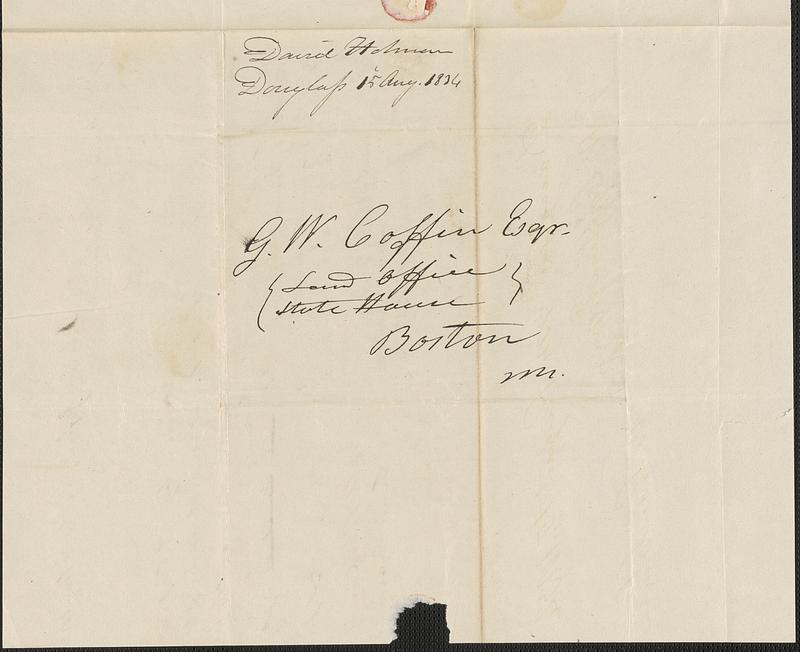 David Holman
Douglass 15 Aug. 1834
G. W. Coffin Esqr.
{ Land Office }
State House
Boston